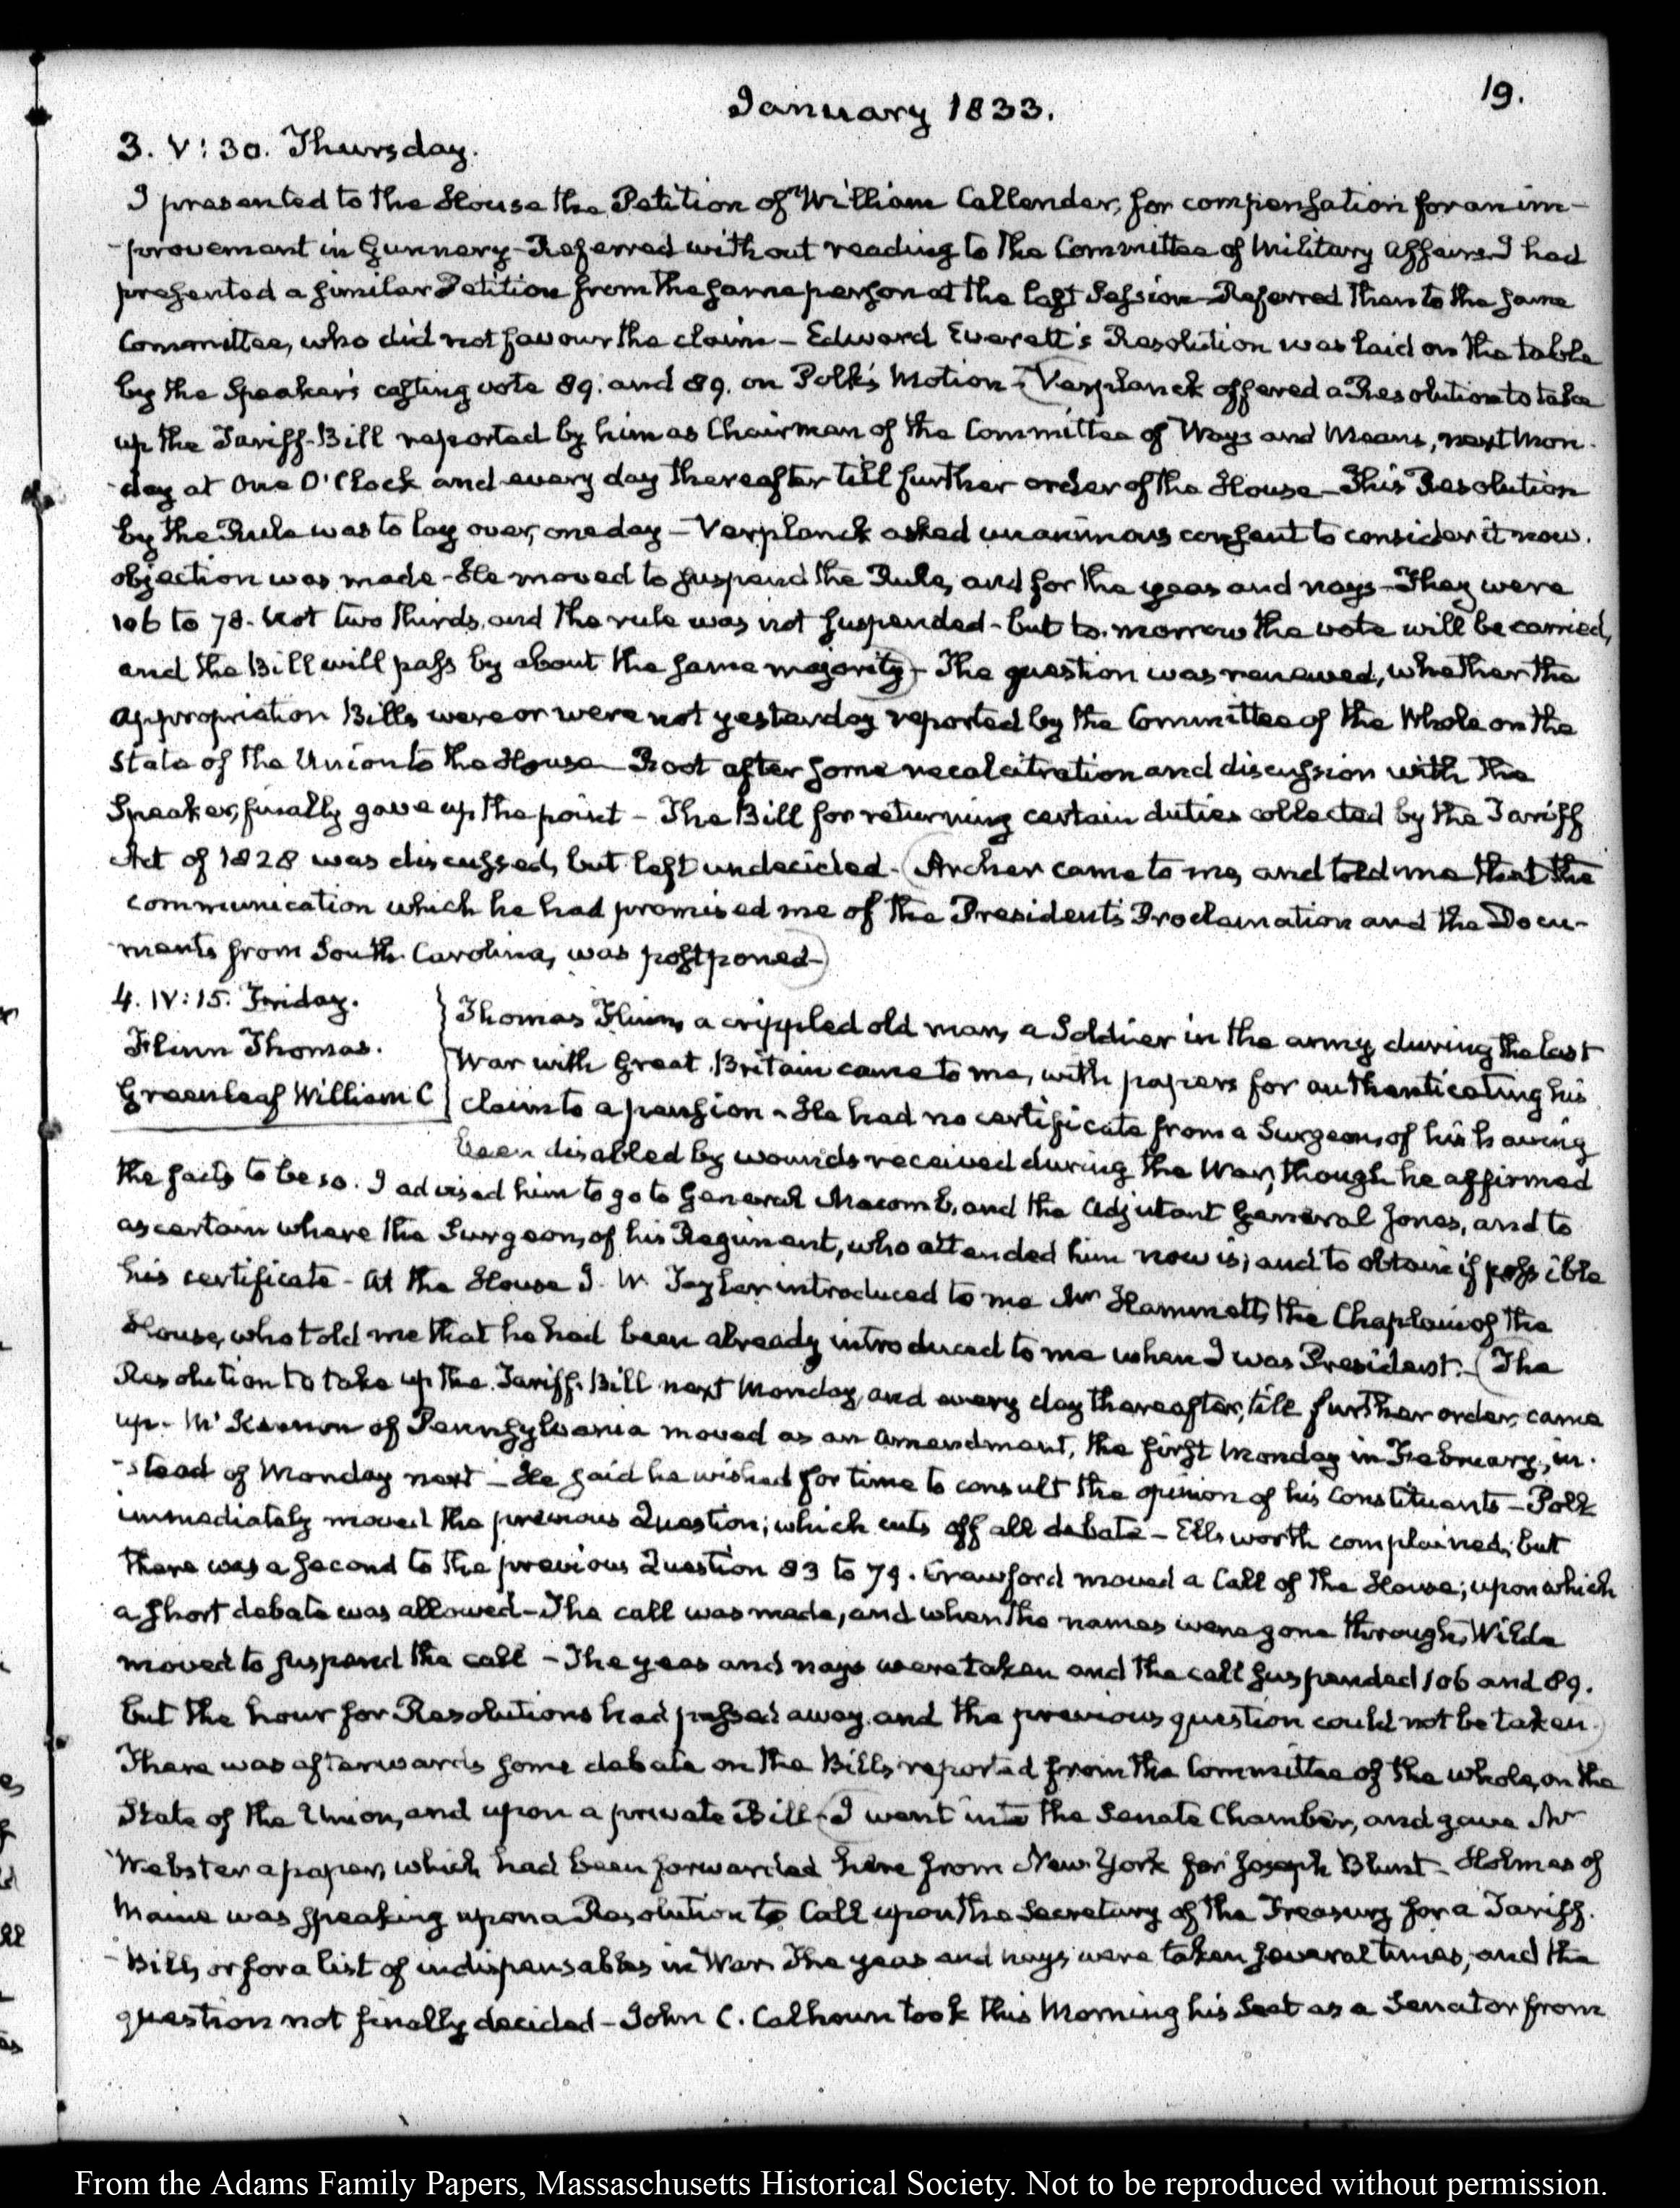 19.
January 1833.
3. V:30. Thursday.
I presented to the House the Petition of William Callender, for compensation for an im-
-provement in Gunnery- Referred without reading to the Committee of Military Affairs. I had
presented a similar Petition from the same person at the last Session- Referred then to the same
Committee, who did not favour the claim- Edward Everett's Resolution was laid on the table
by the Speaker's casting vote 89. and 89. on Polk's Motion- (Verplanck offered a Resolution to take
up the Tariff-Bill reported by him as Chairman of the Committee of Ways and Means, next Mon-
-day at One O'Clock and every day thereafter till further order of the House- This Resolution
by the Rule was to lay over, one day- Verplanck asked unanimous consent to consider it now.
objection was made- He moved to suspend the Rule, and for the yeas and nays- They were
106 to 78. Not two thirds, and the rule was not suspended- but to-morrow the vote will be carried,
and the Bill will pass by about the same majority)- The question was renewed, whether the
Appropriation Bills were or were not yesterday reported by the Committee of the Whole on the
State of the Union to the House- Root after some recalcitration and discussion with the
Speaker, finally gave up the point- The Bill for returning certain duties collected by the Tariff
Act of 1828 was discussed, but left undecided. (Archer came to me, and told me that the
communication which he had promised me of the President's Proclamation and the Docu-
-ments from South-Carolina, was postponed-)
4. IV:15. Friday.
Flinn Thomas.
Greenleaf William C
Thomas Flinn, a crippled old man, a Soldier in the army during the last
War with Great-Britain came to me, with papers for authenticating his
claim to a pension- He had no certificate from a Surgeon, of his having
been disabled by wounds received during the War, though he affirmed
the facts to be so. I advised him to go to General Macomb, and the Adjutant General Jones, and to
ascertain where the Surgeon, of his Regiment, who attended him now is; and to obtain if possible
his certificate- At the House J. W. Taylor introduced to me Mr Hammett, the Chaplain of the
House, who told me that he had been already introduced to me when I was President.- (The
Resolution to take up the Tariff-Bill next Monday, and every day thereafter, till further order, came
up- McKennon of Pennsylvania moved as an amendment, the first Monday in February, in-
-stead of Monday next- He said he wished for time to consult the opinion of his Constituents- Polk
immediately moved the previous Question; which cuts off all debate- Ellsworth complained, but
there was a second to the previous Question 83 to 79. Crawford moved a Call of the House; upon which
a short debate was allowed- The call was made, and when the names were gone through, Wilde
moved to suspend the call- The yeas and nays were taken and the call suspended 106 and 89.
but the hour for Resolutions had passed away, and the previous question could not be taken.)
There was afterwards some debate on the Bills, reported from the Committee of the whole, on the
State of the Union, and upon a private Bill- (I went into the Senate Chamber, and gave Mr
Webster a paper, which had been forwarded here from New-York for Joseph Blunt- Holmes of
Maine was speaking upon a Resolution to Call upon the Secretary of the Treasury for a Tariff-
-Bill, or for a list of indispensables in War. The yeas and nays were taken several times, and the
question not finally decided- John C. Calhoun took this Morning his Seat as a Senator from
From the Adams Family Papers, Massachusetts Historical Society. Not to be reproduced without permission.